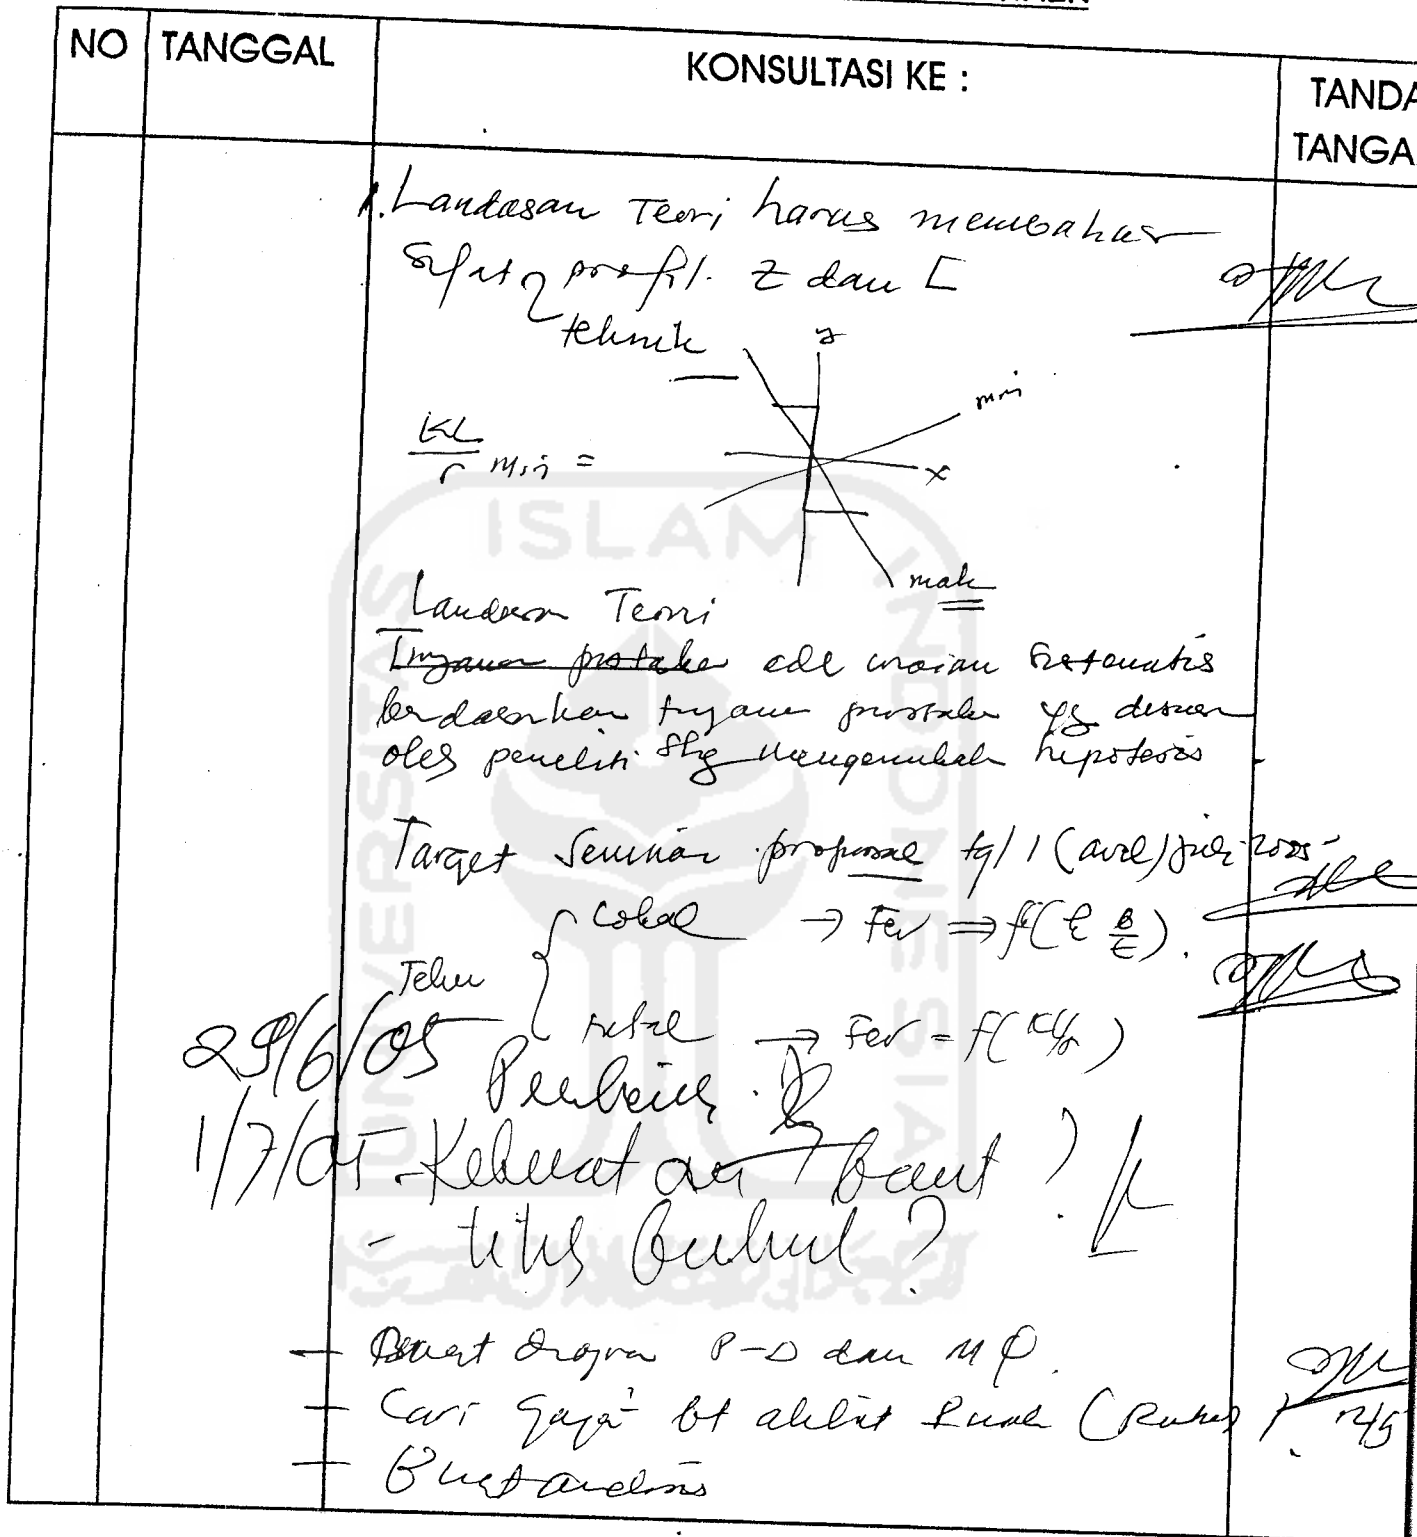 NO TANGGAL KONSULTASI KE : TANDA TANGA
1. Landasan Teori harus membahas
Sifat2 profil Z dan [
tekuk
y
min
KL/r min =
x
mak
Landasan Teori
Tinjauan pustaka adl uraian sistematis
berdasarkan tinjauan pustaka yg disusun
oleh peneliti shg mengemukakan hipotesis
Target Seminar proposal tgl 1 (awal) juli 2005
Lokal → Fcr ⇒ f(
Tekuk
total → Fcr = f(KL/r)
29/6/05
1/7/05 - Kekuatan baut ?
- titik buhul ?
- Buat P-Δ dan M Φ.
- Cari gaya bt akibat
ISLAM
UNIVERSITAS
INDONESIA